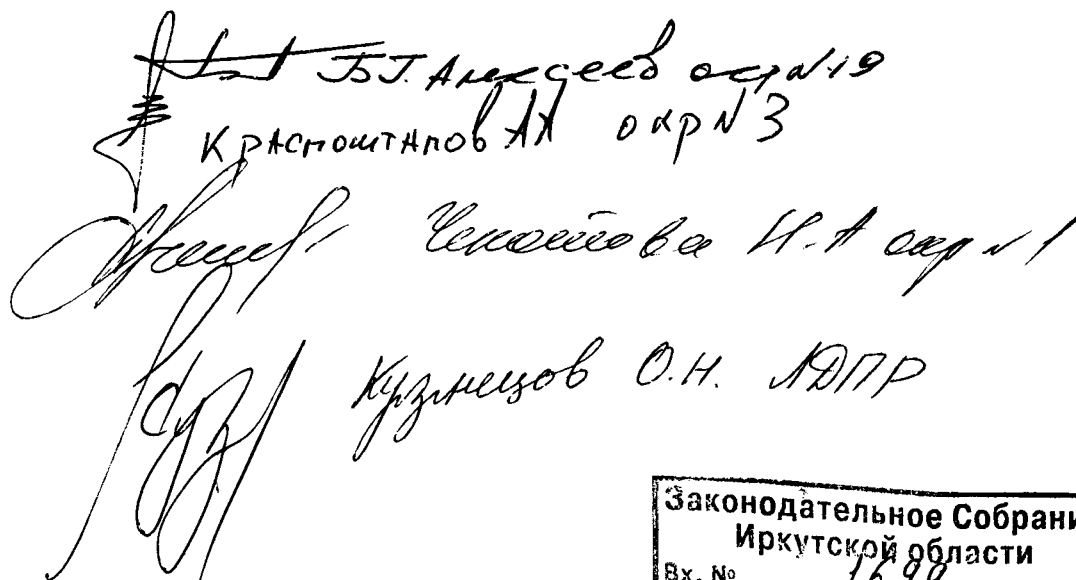 Б.Г. Алексеев окр №19
Красноштанов АА окр № 3
Чекотова Н.А окр № 1
Кузнецов О.Н. ЛДПР
Законодательное Собрани
Иркутской области
Вх. №